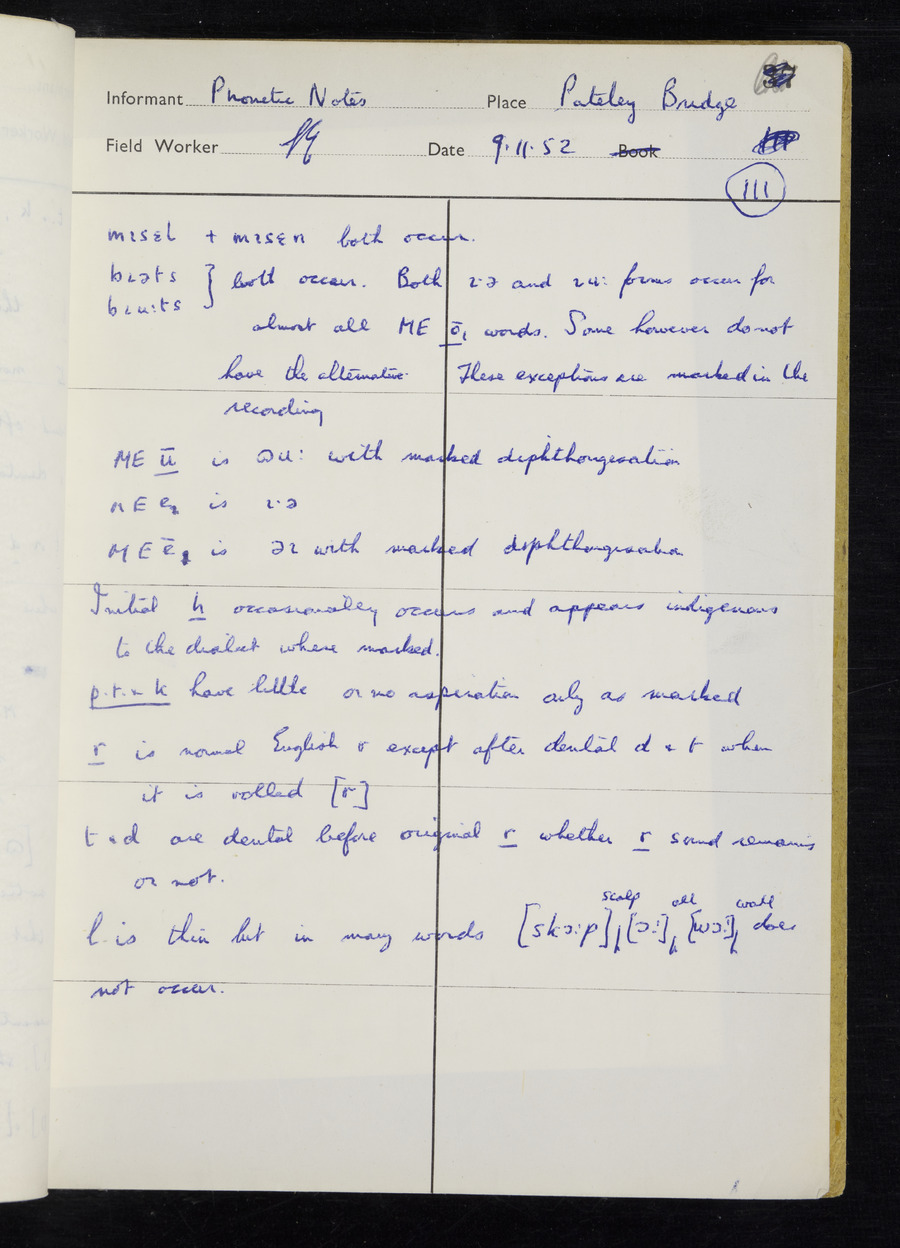 Informant Phonetic Notes Place Pateley Bridge
Field Worker Date 9.11.52 Book
111
mɪsɛl + mɪsɛn both occur.
bɪəts } both occur. Both ɪ·ə and ɪu: forms occur for
bɪu:ts
almost all ME ō₁ words. Some however do not
have the alternative. These exceptions are marked in the
recording
ME ū is əu: with marked diphthongisation
ME e₂ is ɪ·ə
ME ē₁ is əɪ with marked diphthongisation
Initial h occasionally occurs and appears indigenous
to the dialect where marked.
p.t. & k have little or no aspiration only as marked
r is normal English r except after dental d & t when
it is rolled [r]
t & d are dental before original r whether r sound remains
or not.
scalp all wall
l is thin but in many words [skɔ:p], [ɔ:], [wɔ:], does
not occur.